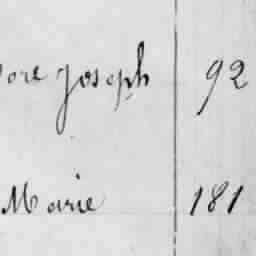 ore Joseph 92
Marie 181